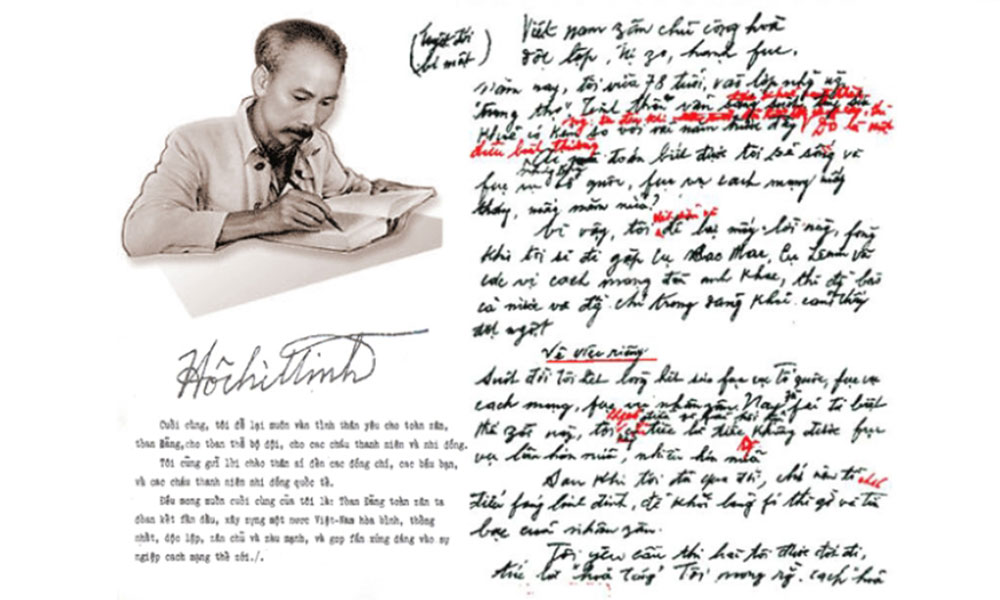 Hồ Chí Minh
Cuối cùng, tôi để lại muôn vàn tình thân yêu cho toàn zân,
toàn Đảng, cho toàn thể bộ đội, cho các cháu thanh niên và nhi đồng.
Tôi cũng gửi lời chào thân ái đến các đồng chí, các bầu bạn,
và các cháu thanh niên nhi đồng quốc tế.
Điều mong muốn cuối cùng của tôi là: Toàn Đảng toàn zân ta
đoàn kết fấn đấu, xây zựng một nước Việt-Nam hòa bình, thống
nhất, độc lập, zân chủ và zàu mạnh, và góp fần xứng đáng vào sự
ngiệp cách mạng thế zới./.
(tuyệt đối
bí mật)
Việt nam zân chủ cộng hoà
độc lập, tự zo, hạnh fúc.
Năm nay, tôi vừa 78 tuổi, vào lớp những ng
"trung thọ". Tinh thần vẫn
khoẻ có kém so với vài năm trước đây. Đó là một
điều bình thường
đoán biết được tôi sẽ sống và
fục vụ tổ quốc, fục vụ cách mạng mấy
tháng, mấy năm nữa?
Vì vậy, tôi để lại mấy lời này, fòng
khi tôi sẽ đi gặp cụ Các Mác, cụ Lênin và
các vị cách mạng đàn anh khác, thì đồng bào
cả nước và đồng chí trong đảng khỏi cảm thấy
đột ngột
Về việc riêng
Suốt đời tôi hết lòng hết sức fục vụ Tổ quốc, fục vụ
cách mạng, fục vụ nhân zân. Nay fải từ biệt
thế zới này, tôi không có điều gì fải hối hận
tiếc là tiếc không được fục
vụ lâu hơn nữa, nhiều hơn nữa
Sau khi tôi đã qua đời, chớ nên tổ chức
điếu fúng linh đình, để khỏi lãng fí thì giờ và tiền
bạc của nhân zân.
Tôi yêu cầu thi hài tôi được đốt đi,
tức là "hoả táng". Tôi mong rằng cách "hoả